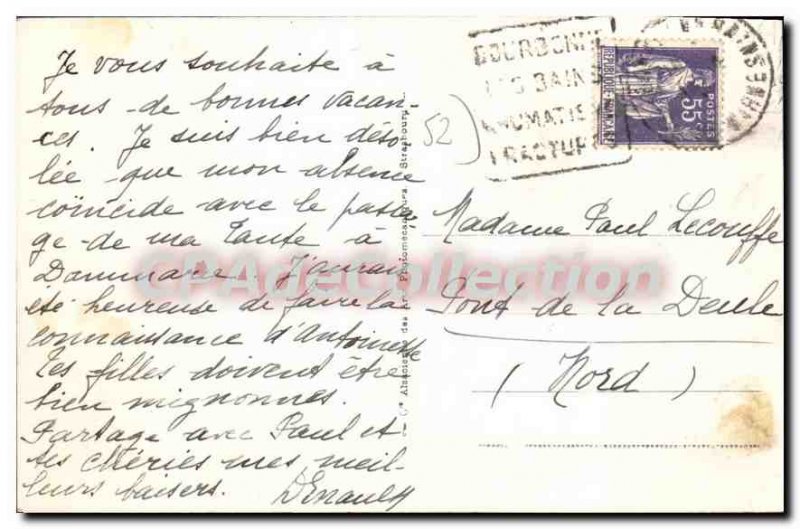 Je vous souhaite à
tous de bonnes vacan-
ces. Je suis bien déso-
lée que mon absence
coïncide avec le passa-
ge de ma Tante à
Dammarie. J'aurais
été heureuse de faire la
connaissance d'Antoinette
Tes filles doivent être
bien mignonnes.
Partage avec Paul et
tes chéries mes meil-
leurs baisers.
52
BOURBONNE
LES BAINS
RHUMATIS
FRACTUR
REPUBLIQUE FRANCAISE
55c
POSTES
Madame Paul Lecouffe
Pont de la Deule
(Nord)
Cie Alsacienne des Arts Photomécaniques, Strasbourg
CPACollection